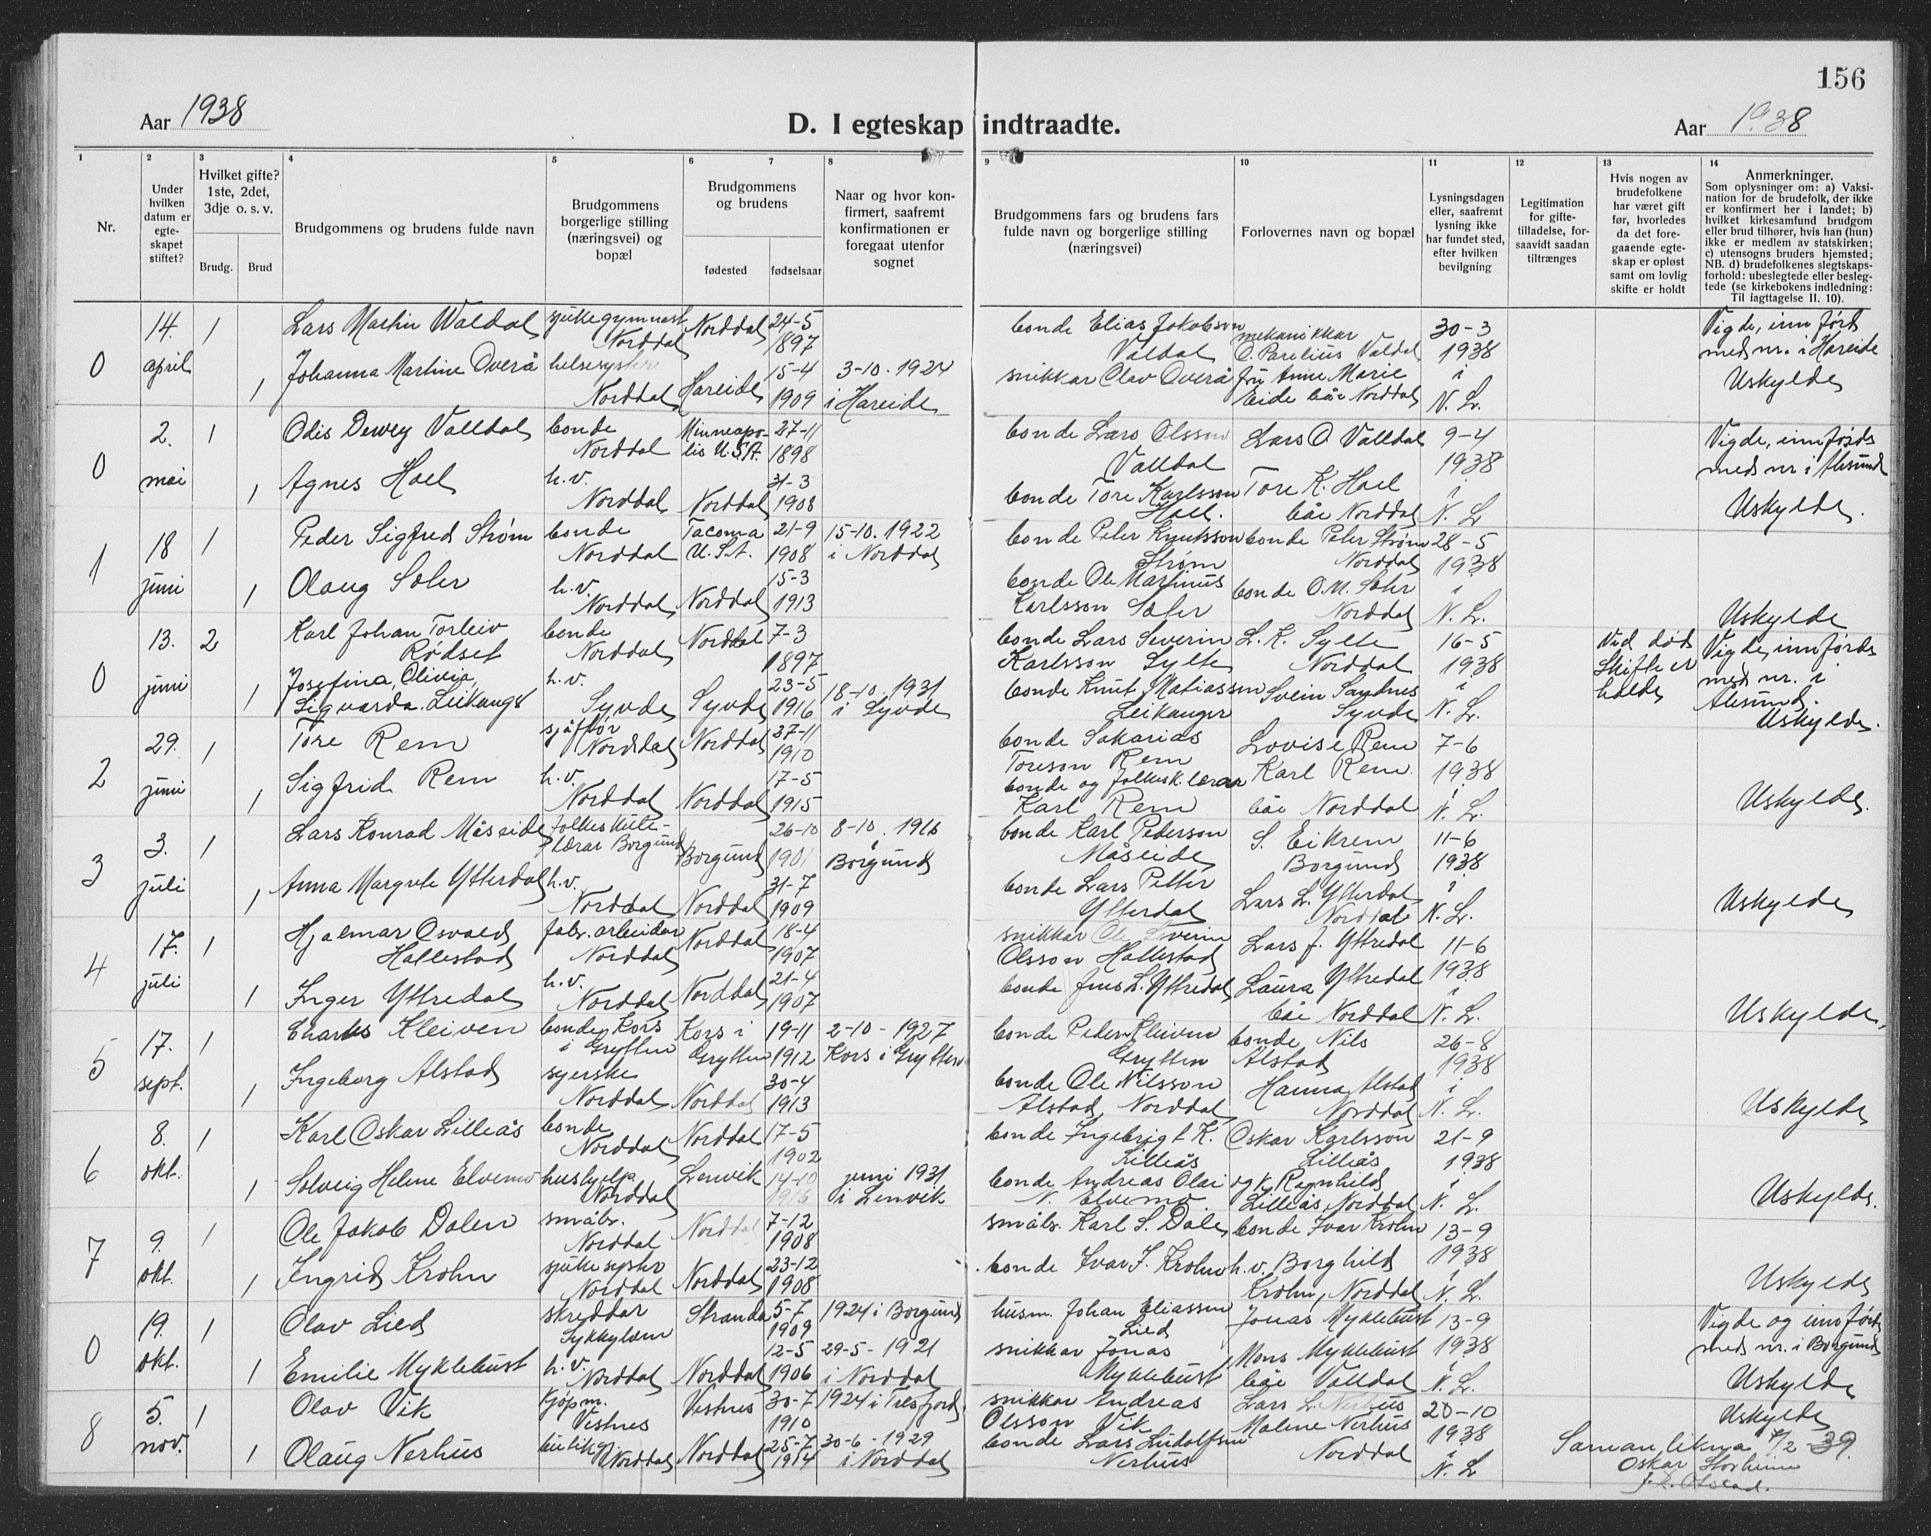 156
Aar 1938
D. I egteskap indtraadte.
Aar 1938
1 2 3 4 5 6 7 8 9 10 11 12 13 14
Nr.
Under hvilken datum er egteskapet stiftet?
Hvilket gifte? 1ste, 2det, 3dje o. s. v.
Brudg. Brud
Brudgommens og brudens fulde navn
Brudgommens borgerlige stilling (næringsvei) og bopæl
Brudgommens og brudens
fødested fødselsaar
Naar og hvor konfirmert, saafremt konfirmationen er foregaat utenfor sognet
Brudgommens fars og brudens fars fulde navn og borgerlige stilling (næringsvei)
Forlovernes navn og bopæl
Lysningsdagen eller, saafremt lysning ikke har fundet sted, efter hvilken bevilgning
Legitimation for giftetilladelse, forsaavidt saadan tiltrænges
Hvis nogen av brudefolkene har været gift før, hvorledes da det foregaaende egteskap er opløst samt om lovlig skifte er holdt
Anmerkninger.
Som oplysninger om: a) Vaksination for de brudefolk, der ikke er konfirmert her i landet; b) hvilket kirkesamfund brudgom eller brud tilhører, hvis han (hun) ikke er medlem av statskirken; c) utensogns bruders hjemsted; NB. d) brudefolkenes slegtskapsforhold: ubeslegtede eller beslegtede (se kirkebokens indledning: Til iagttagelse II. 10).
0 14. april 1 Lars Martin Valdal sjukegymnast Norddal Norddal 24-5 1897 bonde Elias Jakobson Valdal mekanikkar O. Parelius Valdal 30-3 1938 i N. L. Vigde, innførd med nr. i Hareide
1 Johanna Martine Overå helsesyster Norddal Hareide 15-4 1909 3-10. 1924 i Hareide snikkar Olav Overå fru Anne Marie Eide båe Norddal Uskylde
0 2. mai 1 Odis Dewey Valldal bonde Norddal Minneapolis U.S.A. 27-11 1898 bonde Lars Olsson Valldal Lars O. Valldal 9-4 1938 i N. L. Vigde, innførde med nr. i Ålesund
1 Agnes Hoel h.v. Norddal Norddal 31-3 1908 bonde Tore Karlsson Hoel. Tore K. Hoel båe Norddal Uskylde.
1 18 juni 1 Peder Sigfred Strøm bonde Norddal Tacoma U.S.A. 21-9 1908 15-10. 1922 i Norddal bonde Peter Knutsson Strøm bonde Peter Strøm Norddal 28-5 1938 i N. L.
1 Olaug Sæter h.v. Norddal Norddal 15-3 1913 bonde Ole Martinus Karlsson Sæter bonde O.M. Sæter Norddal Uskylde
0 13. juni 2 Karl Johan Torleiv Rødset bonde Norddal Norddal 7-3 1897 bonde Lars Severin Karlsson Sylte L. K. Sylte Norddal 16-5 1938 i N. L. Ved død Skifte er halde Vigde, innførde med nr. i Ålesund.
1 Josefina Olivia Sigvarda Leikanger h.v. Syvde Syvde 23-5 1916 18-10. 1931 i Syvde bonde Knut Matiassen Leikanger Svein Sandnes Syvde Uskylde.
2 29. juni 1 Tore Rem sjåfför Norddal Norddal 27-11 1910 bonde Sakarias Toreson Rem Lovise Rem 7-6 1938 i N. L.
1 Sigfrid Rem h.v. Norddal Norddal 17-5 1915 bonde og folkesk. lærar Karl Rem Karl Rem båe Norddal Uskylde.
3 3. juli 1 Lars Konrad Måseide folkeskulelærar Borgund Borgund 26-10 1901 8-10. 1916 Borgund bonde Karl Pederson Måseide S. Eikrem Borgund 11-6 1938 i N. L.
1 Anna Margrete Ytterdal h.v. Norddal Norddal 31-7 1909 bonde Lars Petter Ytterdal Lars L. Ytterdal Norddal Uskylde
4 17. juli 1 Hjalmar Osvald Hallestad fabr. arbeidar Norddal Norddal 18-4 1907 snikkar Ole Severin Olsson Hallestad Lars J. Yttredal 11-6 1938 i N. L.
1 Inger Yttredal h.v. Norddal Norddal 21-4 1907 bonde Jens L. Yttredal Laura Yttredal båe Norddal Uskylde.
5 17. sept. 1 Charles Kleiven bonde, Kors i Grytten Kors i Grytten 19-11 1912 2-10-1927 Kors i Grytten bonde Peder Kleiven Grytten bonde Nils Alstad 26-8 1938 i N. L.
1 Ingeborg Alstad syerske Norddal Norddal 30-4 1913 bonde Ole Nilsson Alstad, Norddal Hanna Alstad Norddal Uskylde
6 8. okt. 1 Karl Oskar Lilleås bonde Norddal Norddal 17-5 1902 bonde Ingebrigt K. Lilleås Oskar Karlsson Lilleås 21-9 1938 i N. L.
1 Solveig Helene Elvemo hushjelp Norddal Lenvik 14-10 1916 juni 1931 i Lenvik bonde Andreas Olei N. Elvemo og k. Ragnhild Lilleås, Norddal Uskylde.
7 9. okt. 1 Ole Jakob Dalen småbr. Norddal Norddal 7-12 1908 småbr. Karl S. Dale bonde Ivar Krohn 13-9 1938 i N. L.
1 Ingrid Krohn sjukesyster Norddal Norddal 23-12 1908 bonde Ivar J. Krohn h.v. Borghild Krohn, Norddal Uskylde
0 19. okt. 1 Olav Lied skreddar Sykkylven Stranda 5-7 1909 1924 i Borgund husm. Johan Eliassen Lied Jonas Myklebust 13-9 1938 i N. L. Vigde og innførde med nr. i Borgund
1 Emilie Myklebust h.v. Norddal Norddal 12-5 1906 29-5-1921 i Norddal snikkar Jonas Myklebust Mons Myklebust båe Valldal Uskylde
8 5. nov. 1 Olav Vik kjøpm. Vestnes Vestnes 30-7 1910 1924 i Tresfjord snikkar Andreas Olsson Vik Lars L. Nerhus 20-10 1938 N. L. Uskylde
1 Olaug Nerhus Norddal Norddal 25-7 1914 30-6-1929 i Norddal bonde Lars Ludolfsen Nerhus Malene Nerhus Norddal
Samanlikna 4/2 39.
Oskar Storheim